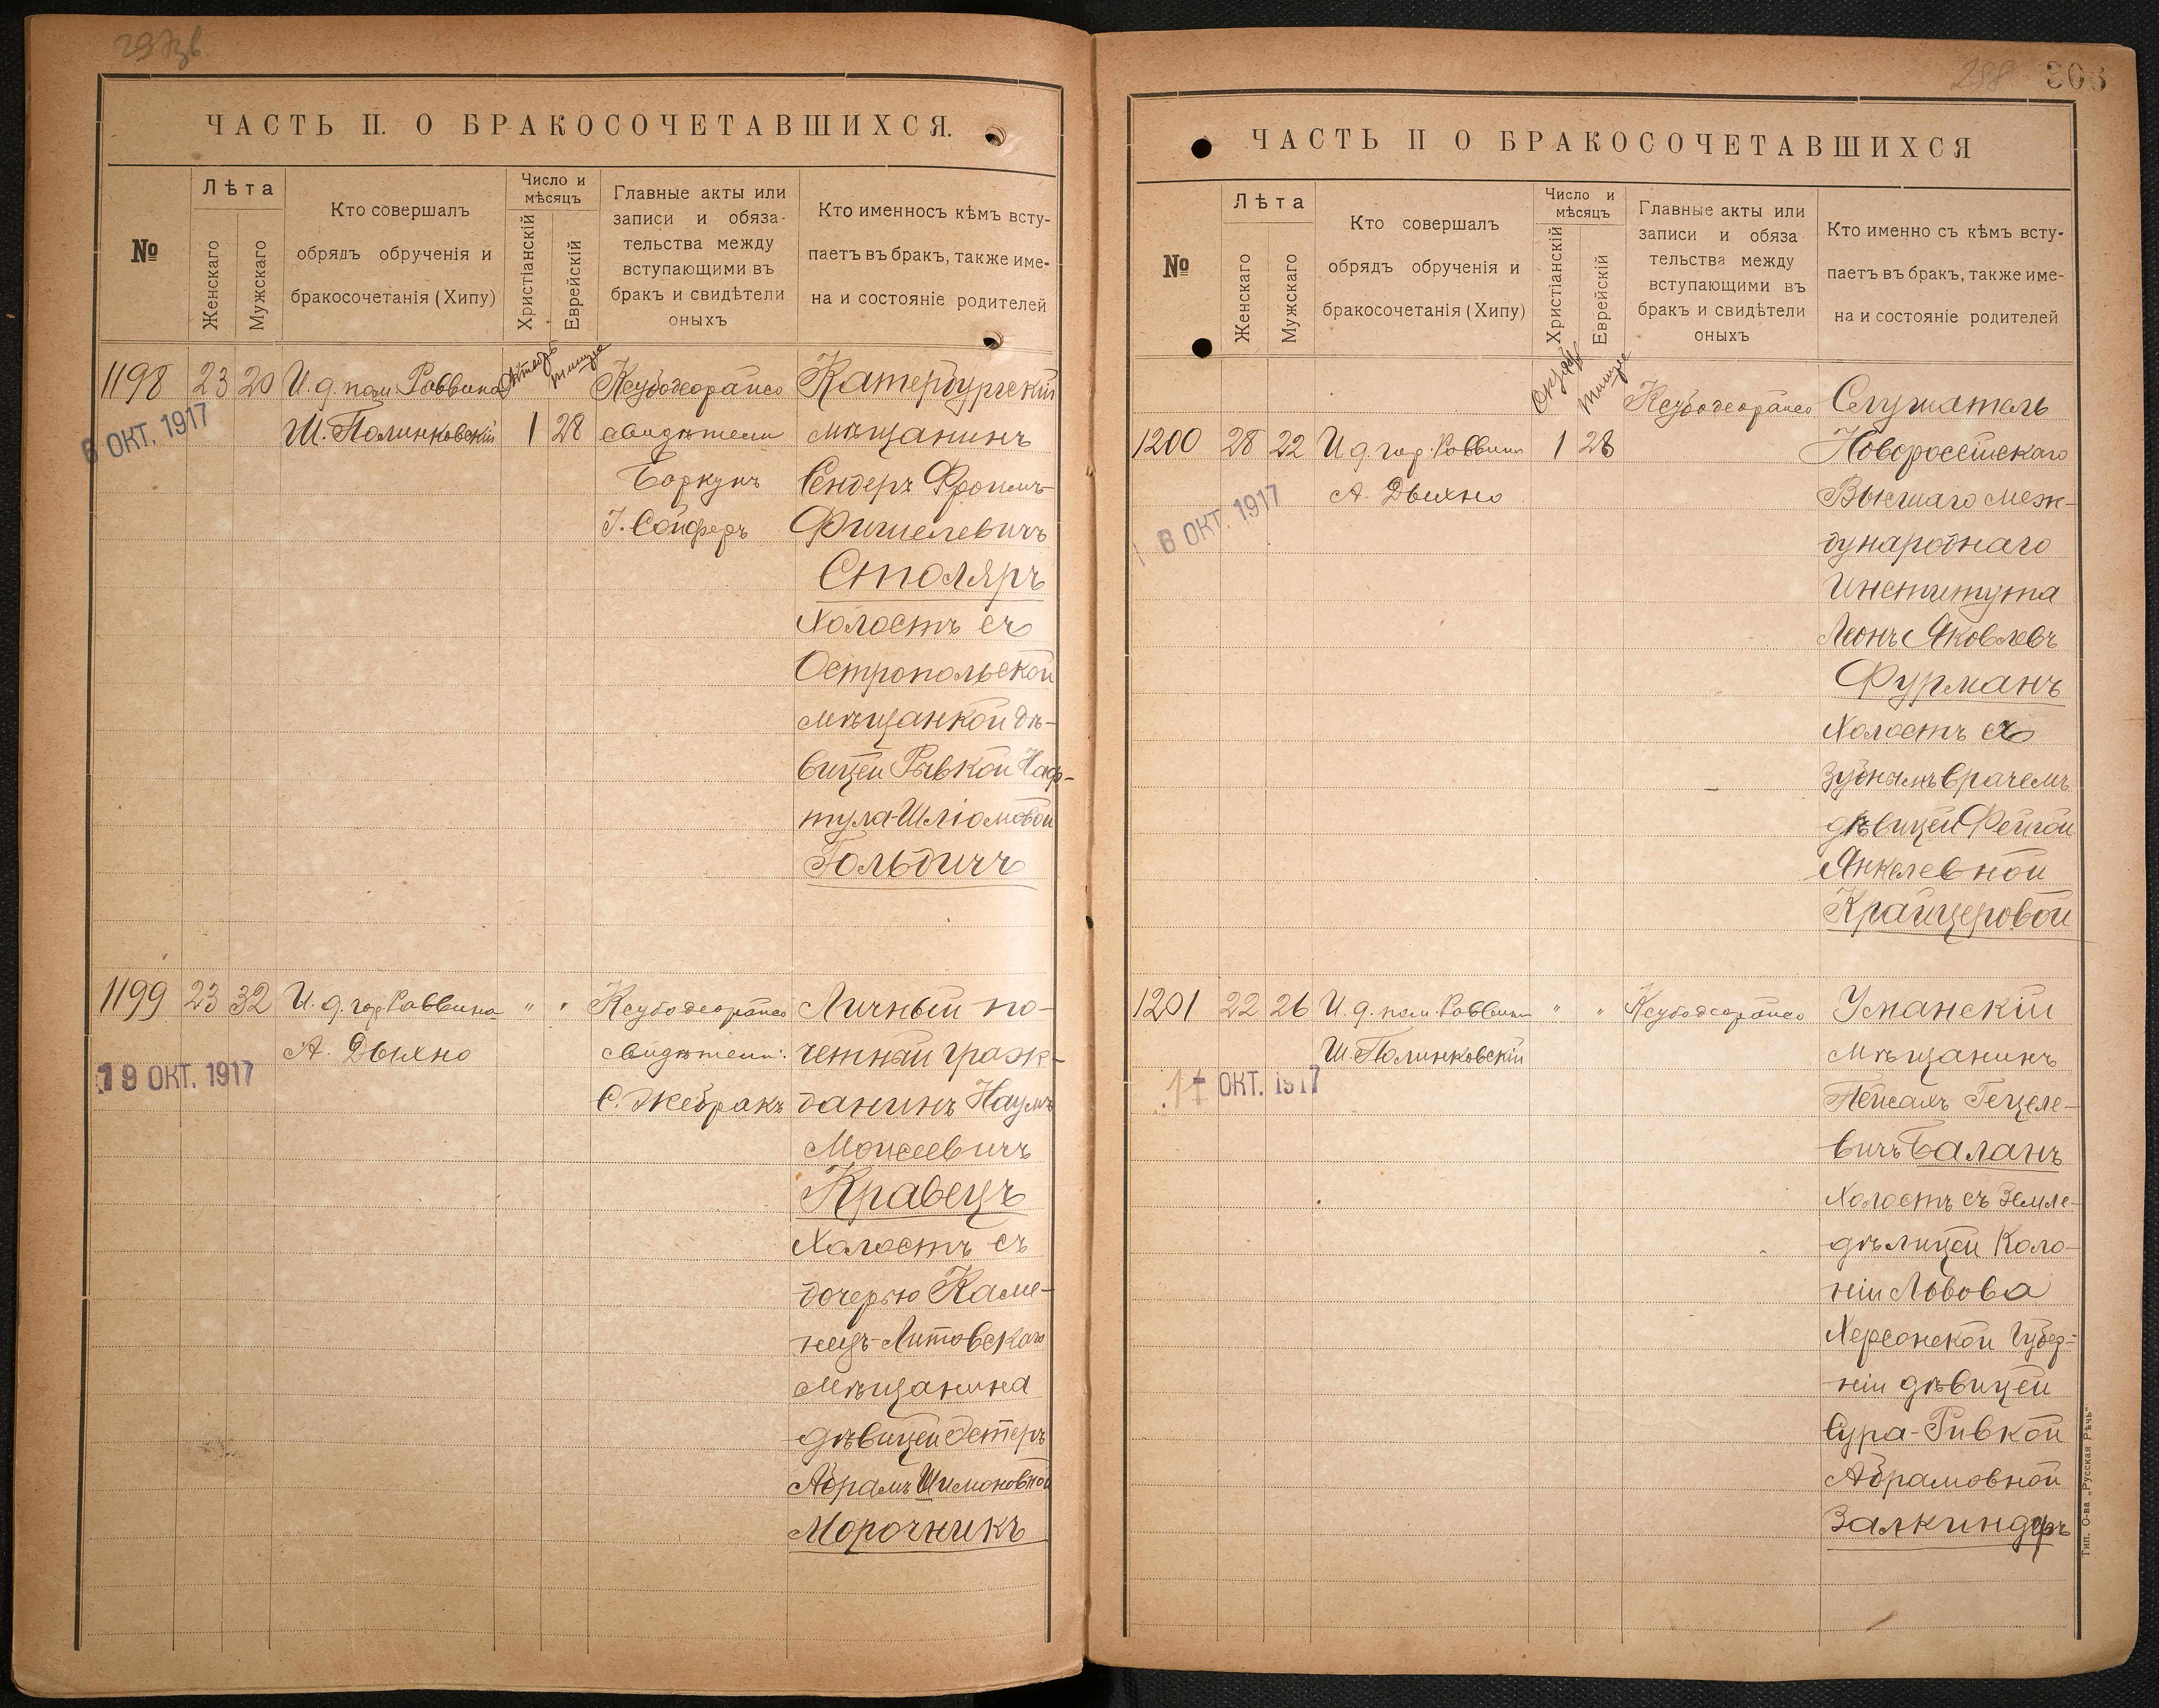 ЧАСТЬ II. О БРАКОСОЧЕТАВШИХСЯ.
№
Лѣта
Женскаго
Мужскаго
Кто совершалъ
обрядъ обрученія и
бракосочетанія (Хипу)
Число и
мѣсяцъ
Христіанскій
Еврейскій
Главные акты или
записи и обяза-
тельства между
вступающими въ
бракъ и свидѣтели
оныхъ
Кто именносъ кѣмъ всту-
паетъ въ бракъ, также име-
на и состояніе родителей
1198 23 20 И. д. пом. Раввина
Ш. Полинковскій 1 28
свидѣтели
Боркунъ
І. Сойферъ
Катербургскій
мѣщанинъ
Сендеръ Фроимъ-
Фишелевичъ
Столяръ
Холостъ съ
Остропольской
мѣщанкой дѣ-
вицей Рывкой Наф-
тула-Шліомовой
Гольдичъ
6 ОКТ. 1917
1199 23 32 И. д. гор. Раввина " "
А. Дыхно
свидѣтели:
С. Жебракъ
Личный по-
четный граж-
данинъ Наумъ
Моисеевичъ
Кравецъ
Холостъ съ
дочерью Каме-
нецъ-Литовскаго
мѣщанина
дѣвицей Эстеръ
Абрамъ Шимоновной
Морочникъ
19 ОКТ. 1917
306
298
ЧАСТЬ II О БРАКОСОЧЕТАВШИХСЯ
№
Лѣта
Женскаго
Мужскаго
Кто совершалъ
обрядъ обрученія и
бракосочетанія (Хипу)
Число и
мѣсяцъ
Христіанскій
Еврейскій
Главные акты или
записи и обяза
тельства между
вступающими въ
бракъ и свидѣтели
оныхъ
Кто именно съ кѣмъ всту-
паетъ въ бракъ, также име-
на и состояніе родителей
1200 28 22 И д гор. Раввина 1 28
А. Дыхно
Слушатель
Новороссійскаго
Высшаго меж-
дународнаго
Института
Леонъ Яковлевъ
Фурманъ
Холостъ съ
зубнымъ врачемъ
дѣвицей Фейгой
Янкелевной
Крайцеровой
6 ОКТ. 1917
1201 22 26 И. д. пом. Раввина " "
Ш. Полинковскій
Уманскій
мѣщанинъ
Пейсахъ Гецеле-
вичъ Баланъ
Холостъ съ Земле-
дѣлицей Коло-
ніи Львова
Херсонской Губер-
ніи дѣвицей
Сура-Ривкой
Абрамовной
Залкиндеръ
ОКТ. 1917
Тип. О-ва „Русская Рѣчь"